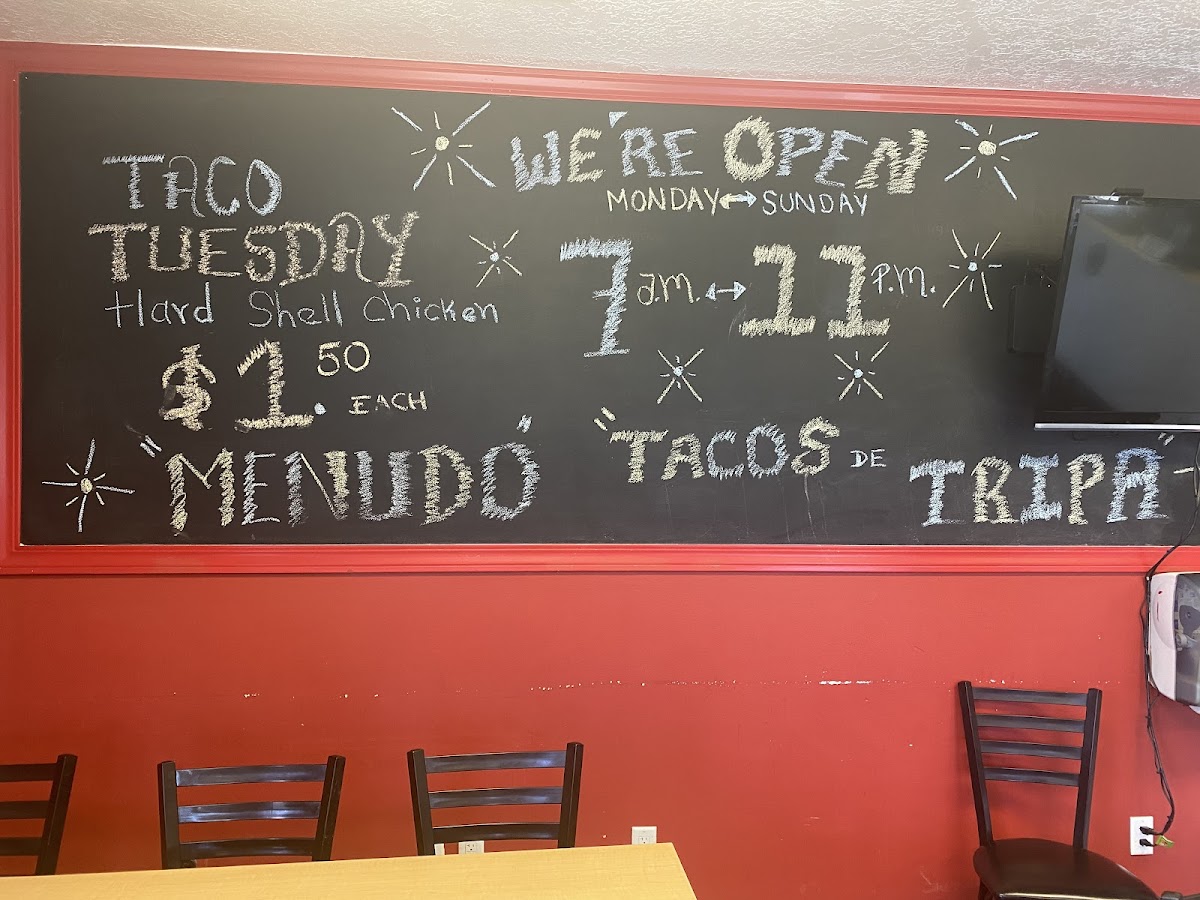 TACO
TUESDAY
Hard Shell Chicken
$1.50 EACH
"MENUDO"
WE'RE OPEN
MONDAY ↔ SUNDAY
7 a.m. ↔ 11 P.M.
"TACOS DE TRIPA"